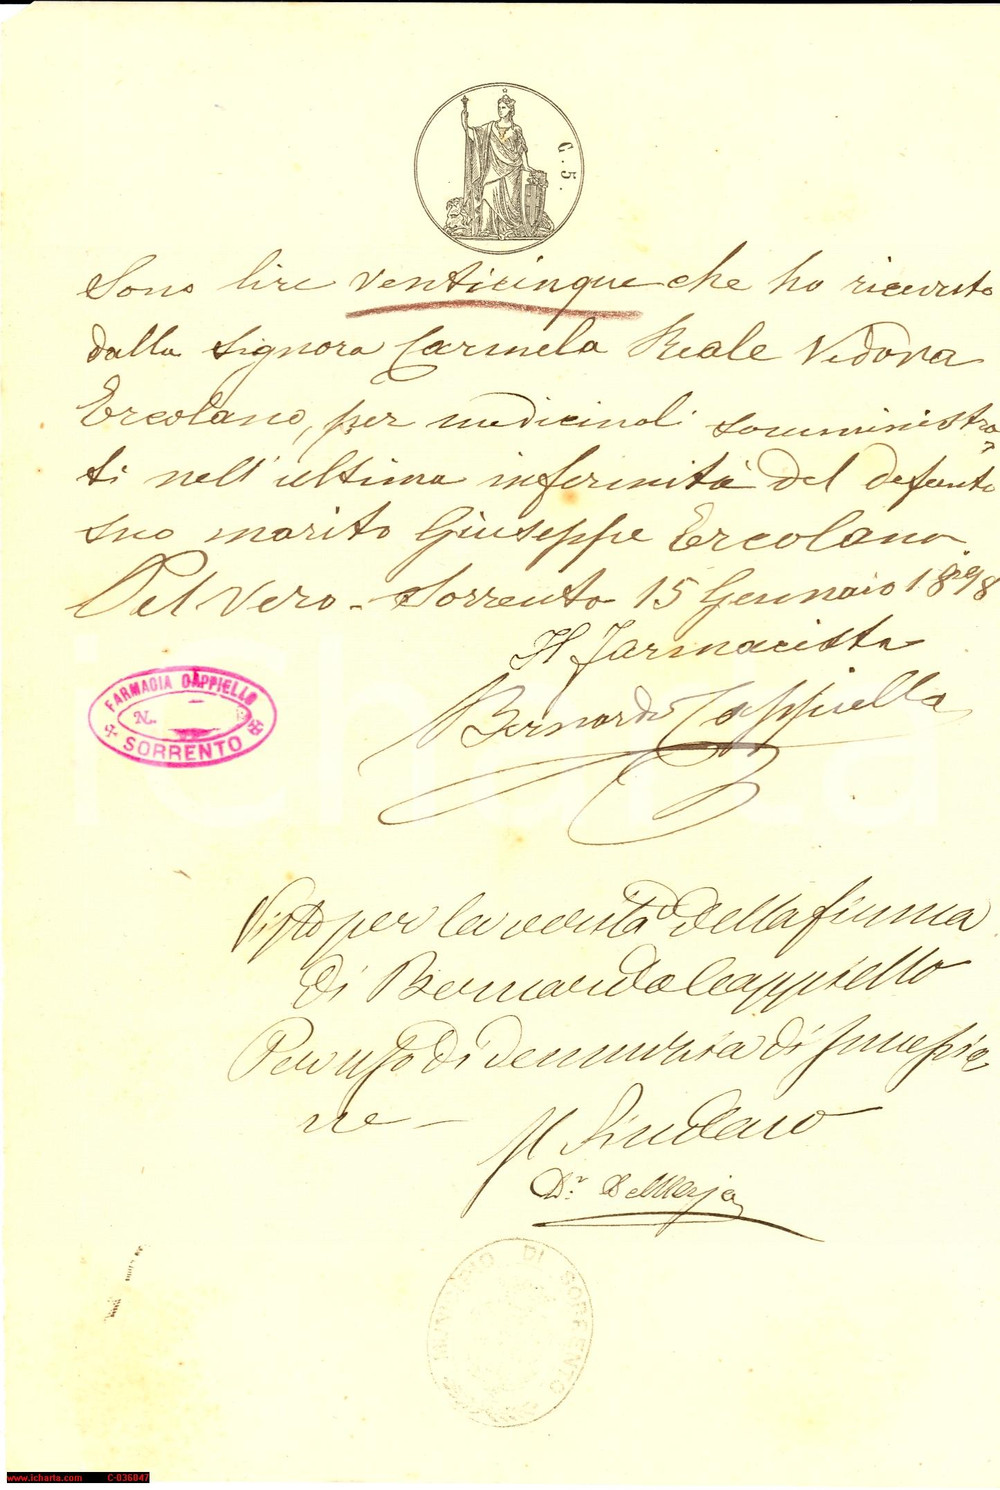 C. 5.
Sono lire venticinque che ho ricevuto
dalla signora Carmela Reale Vedova
Ercolano, per medicinali somministra-
ti nell'ultima infermità del defunto
suo marito Giuseppe Ercolano.
Pel vero - Sorrento 15 Gennaio 1898
Il Farmacista
Bernardo Cappiello
FARMACIA CAPPIELLO
N.
SORRENTO
Visto per la verità della firma
di Bernardo Cappiello
Per uso di denunzia di successio
ne -
Il Sindaco
Dr.
MUNICIPIO DI SORRENTO
www.icharta.com C-036047